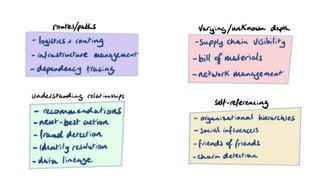 routes/paths
- logistics + routing
- infrastructure management
- dependency tracing
Varying/unknown depth
- supply chain visibility
- bill of materials
- network management
understanding relationships
- recommendations
- next-best action
- fraud detection
- identity resolution
- data lineage
self-referencing
- organisational hierarchies
- social influencers
- friends of friends
- churn detection